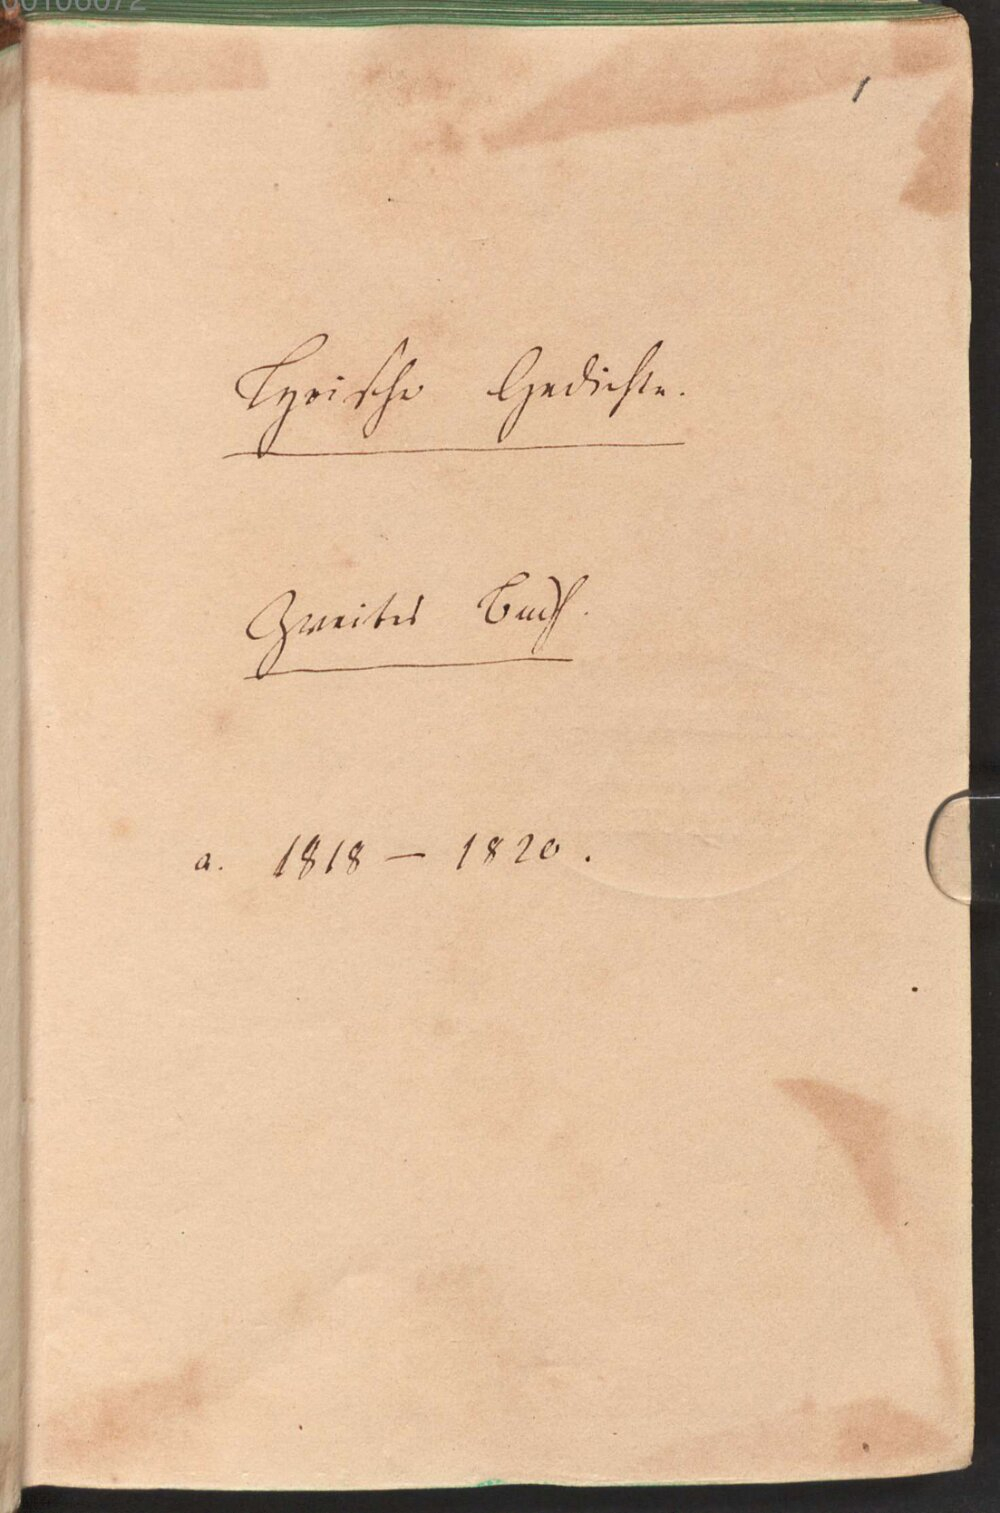 1
Lyrische Gedichte.
Zweites Buch.
a. 1818 — 1820.